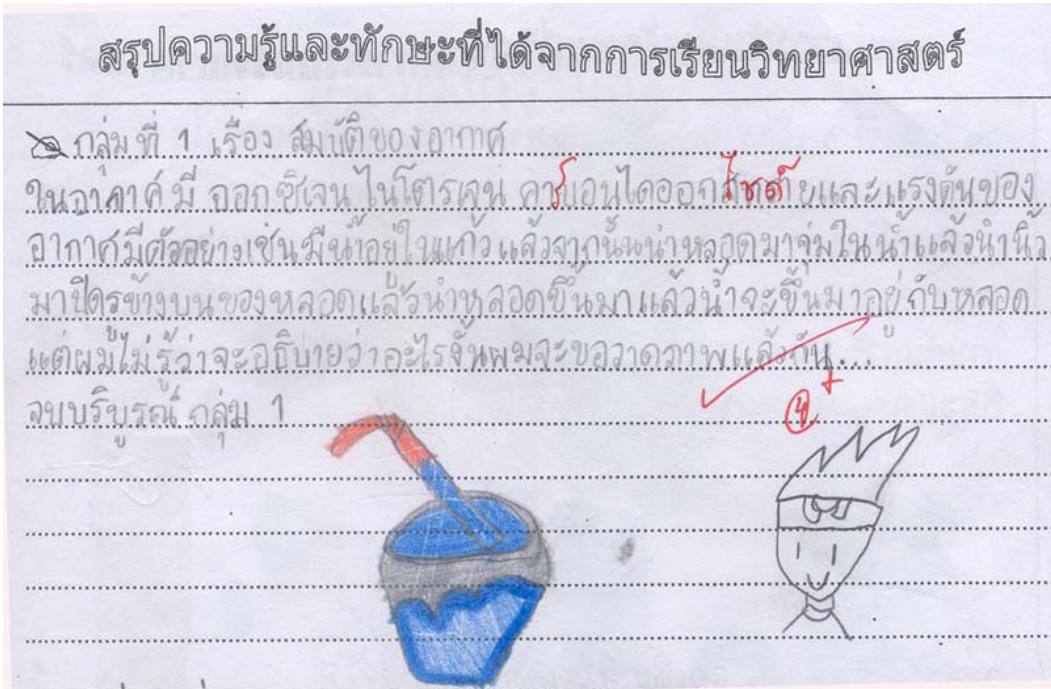 สรุปความรู้และทักษะที่ได้จากการเรียนวิทยาศาสตร์
กลุ่มที่ 1 เรื่อง สมบัติของอากาศ
ในอากาศมี ออกซิเจน ไนโตรเจน คาร์บอนไดออกไซด์ และแรงดันของ
อากาศมีตัวอย่างเช่นมีน้ำอยู่ในแก้วแล้วจากนั้นนำหลอดมาจุ่มในน้ำแล้วนำนิ้ว
มาปิดรูข้างบนของหลอดแล้วนำหลอดขึ้นมาแล้วน้ำจะขึ้นมาอยู่กับหลอด
แต่ผมไม่รู้ว่าจะอธิบายว่าอะไรงั้นผมจะขอวาดภาพแล้วกัน...
4+
จบบริบูรณ์ กลุ่ม 1